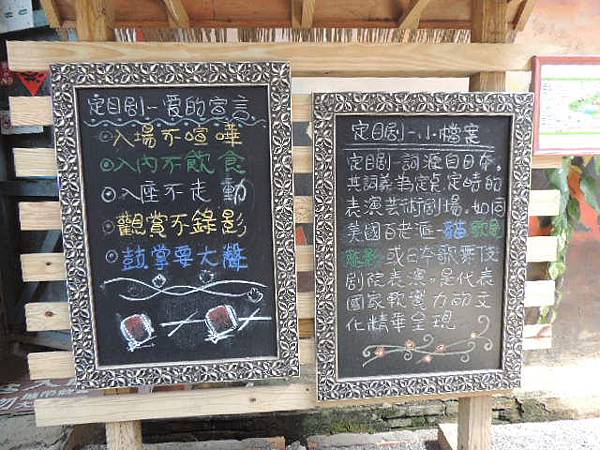 定目劇-愛的宣言
⊙入場不喧嘩
⊙入內不飲食
⊙入座不走動
⊙觀賞不錄影
⊙鼓掌要大聲
定目劇-小檔案
定目劇一詞源自日本,
其詞義為定點、定時的
表演芸術劇場。如同
美國百老滙-貓 歌劇
魅影 或日本歌舞伎
劇院表演。是代表
國家軟實力的文
化精華呈現